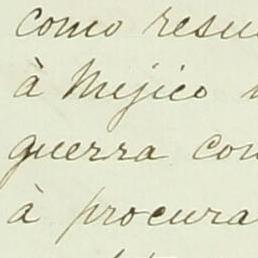 como resu
à Mejico
guerra con
à procura